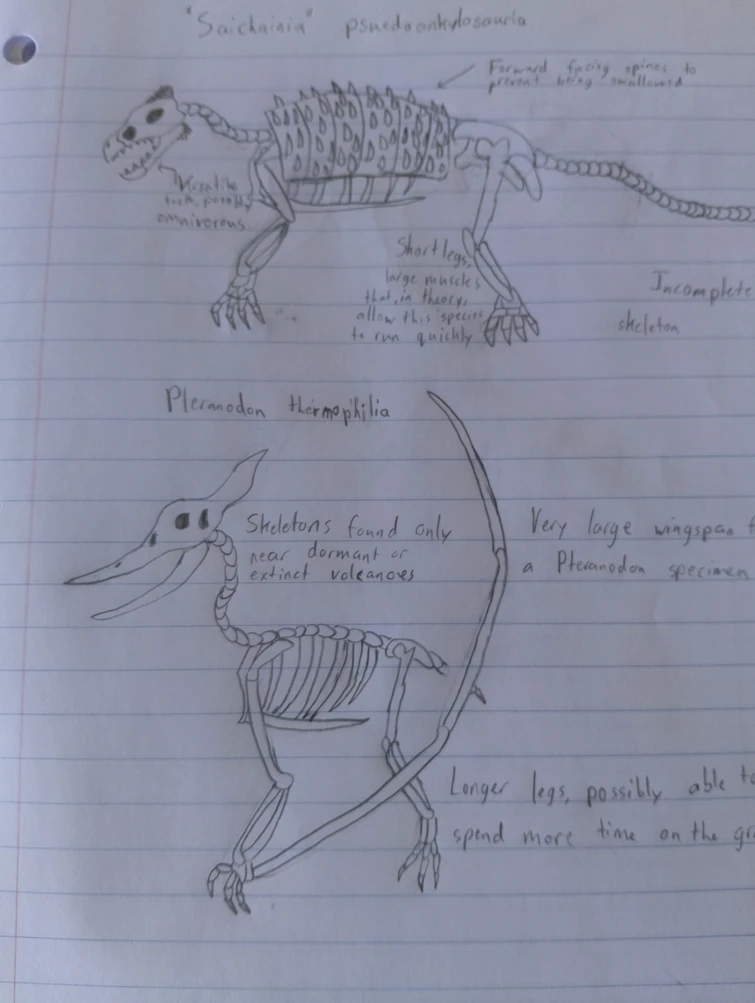 "Saichainia" psuedoankylosauria
Forward facing spines to
prevent being swallowed
Versatile
teeth, possibly
omnivorous
Short legs,
large muscles
that, in theory,
allow this species
to run quickly
Incomplete
skeleton
Pteranodon thermophilia
Skeletons found only
near dormant or
extinct volcanoes
Very large wingspan f
a Pteranodon specimen
Longer legs, possibly able to
spend more time on the gr